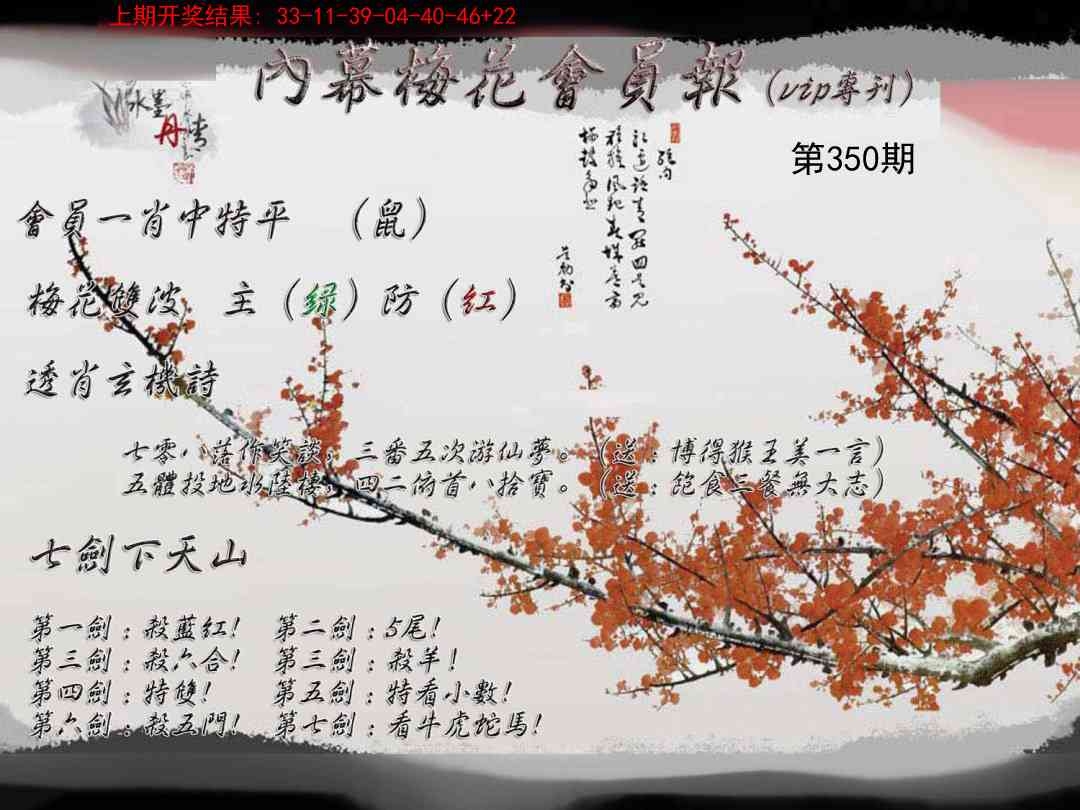 上期开奖结果: 33-11-39-04-40-46+22
內幕梅花會員報(vip專刊)
水墨
丹情
第350期
會員一肖中特平 （鼠）
梅花雙波 主（绿）防（红）
透肖玄機詩
七零八落作笑談，三番五次游仙夢。（送：博得猴王美一言）
五體投地水陸樓，四二俯首八拾寶。（送：飽食三餐無大志）
七劍下天山
第一劍：殺藍紅！ 第二劍：5尾！
第三劍：殺六合！ 第三劍：殺羊！
第四劍：特雙！ 第五劍：特看小數！
第六劍：殺五門！ 第七劍：看牛虎蛇馬！